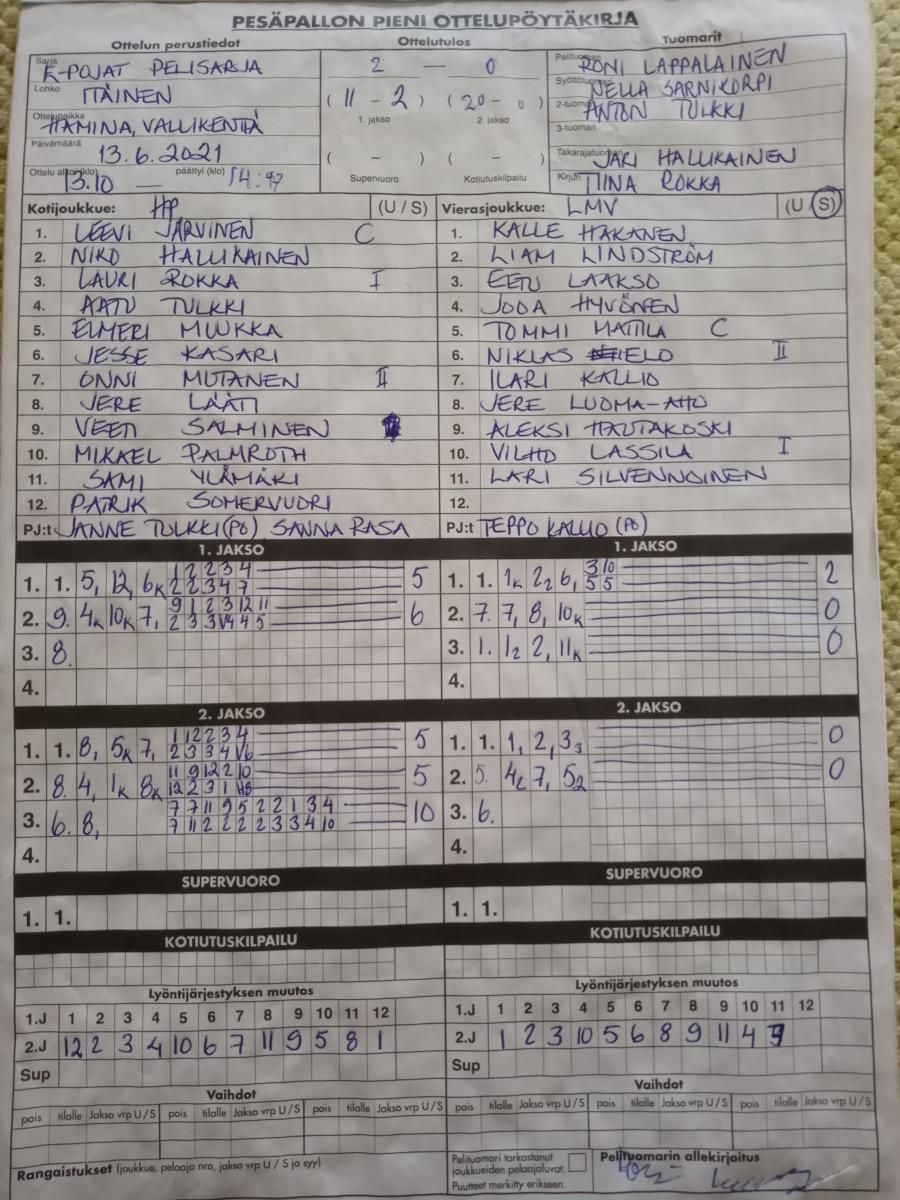 PESÄPALLON PIENI OTTELUPÖYTÄKIRJA
Ottelun perustiedot Ottelutulos Tuomarit
Sarja E-POJAT PELISARJA
Lohko ITÄINEN
Ottelupaikka HAMINA, VALLIKENTÄ
Päivämäärä 13.6.2021
Ottelu alkoi (klo) 13.10 — päättyi (klo) 14:47
2 — 0
(11 - 2) (20 - 0)
1. jakso 2. jakso
( - ) ( - )
Supervuoro Kotiutuskilpailu
Pelituomari RONI LAPPALAINEN
Syöttötuomari NELLA SARNIKORPI
2-tuomari ANTON TULKKI
3-tuomari
Takarajatuomari JARI HALLIKAINEN
Kirjuri TIINA ROKKA
Kotijoukkue: HP (U / S) Vierasjoukkue: LMV (U / S)
1. LEEVI JÄRVINEN C 1. KALLE HAKANEN
2. NIKO HALLIKAINEN 2. LIAM LINDSTRÖM
3. LAURI ROKKA I 3. EETU LAAKSO
4. AATU TULKKI 4. JOOA HYVÖNEN
5. ELMERI MUUKKA 5. TOMMI MATTILA C
6. JESSE KASARI 6. NIKLAS IELO II
7. ONNI MUTANEN II 7. ILARI KALLIO
8. JERE LÄÄTI 8. JERE LUOMA-AHO
9. VEETI SALMINEN 9. ALEKSI HAUTAKOSKI
10. MIKAEL PALMROTH 10. VILHO LASSILA I
11. SAMI YLÄMÄKI 11. LARI SILVENNOINEN
12. PATRIK SOMERVUORI 12.
PJ:t JANNE TULKKI (PÖ) SANNA RASA PJ:t TEPPO KALLIO (PÖ)
1. JAKSO 1. JAKSO
1. 1. 5, 12, 6K 1 2 2 3 4 5
2 2 3 4 7
2. 9. 4K 10K 7, 9 1 2 3 12 11 6
2 3 3 V4 4 5
3. 8.
4.
1. 1. 1K 2 2 6, 3 10 2
5 5
2. 7. 7, 8, 10K 0
3. 1. 1 2 2, 11K 0
4.
2. JAKSO 2. JAKSO
1. 1. 8, 5K 7, 1 12 2 3 4 5
2 3 3 4 V6
2. 8. 4, 1K 8K 11 9 12 2 10 5
12 2 3 1 H8
3. 6. 8, 7 7 11 9 5 2 2 1 3 4 10
7 11 2 2 2 2 3 3 4 10
4.
1. 1. 1, 2, 3 3 0
2. 5. 4 2 7, 5 2 0
3. 6.
4.
SUPERVUORO SUPERVUORO
1. 1. 1. 1.
KOTIUTUSKILPAILU KOTIUTUSKILPAILU
Lyöntijärjestyksen muutos Lyöntijärjestyksen muutos
1.J 1 2 3 4 5 6 7 8 9 10 11 12 1.J 1 2 3 4 5 6 7 8 9 10 11 12
2.J 12 2 3 4 10 6 7 11 9 5 8 1 2.J 1 2 3 10 5 6 8 9 11 4
Sup Sup
Vaihdot Vaihdot
pois tilalle Jakso vrp U / S pois tilalle Jakso vrp U / S pois tilalle Jakso vrp U / S pois tilalle Jakso vrp U / S pois tilalle Jakso vrp U / S pois tilalle Jakso vrp U / S
Rangaistukset (joukkue, pelaaja nro, jakso vrp U / S ja syy)
Pelituomari tarkastanut
joukkueiden pelaajaluvat.
Puutteet merkitty erikseen.
Pelituomarin allekirjoitus